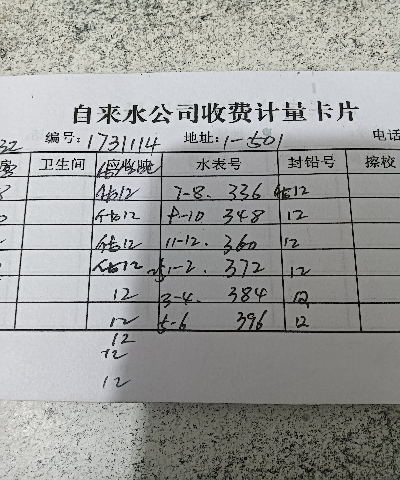 自来水公司收费计量卡片
32 编号:1731114 地址:1-501 电话
卫生间 水表号 封铅号 擦校
估12 7-8. 336 估12
估12 9-10 348 12
估12 11-12. 360 12
估12 1-2. 372 12
12 3-4. 384 12
12 5-6 396 12
12
12
12